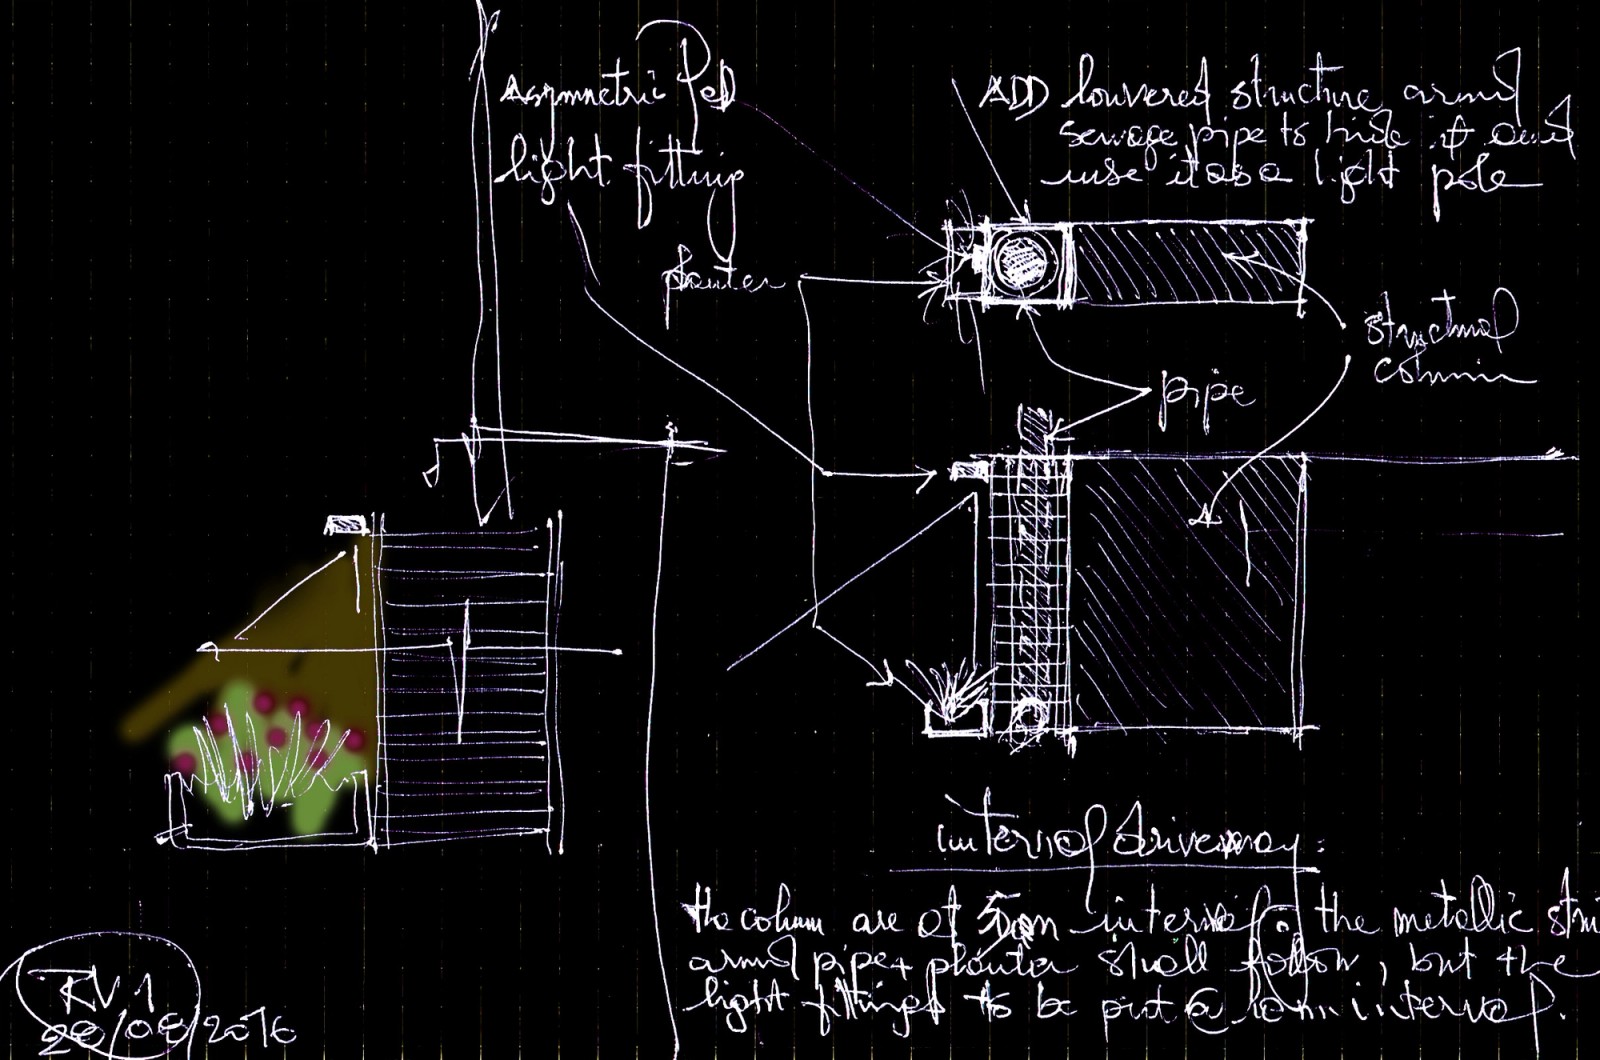 Asymmetric Led
light fitting
ADD louvered structure around
sewage pipe to hide it and
use it as a light pole
planter
structural
column
pipe
internal driveway:
the column are at 5.0m interval @ the metallic stru
around pipe + planter shall follow, but the
light fittings to be put @ 10m interval.
RV 1